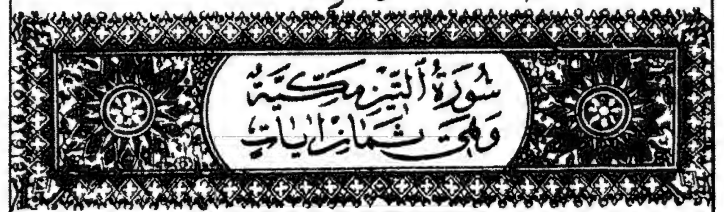 سُورَةُ ٱلتِّينِ مَكِّيَّةٌ
وَهِيَ ثَمَانِ اٰيَاتٍ